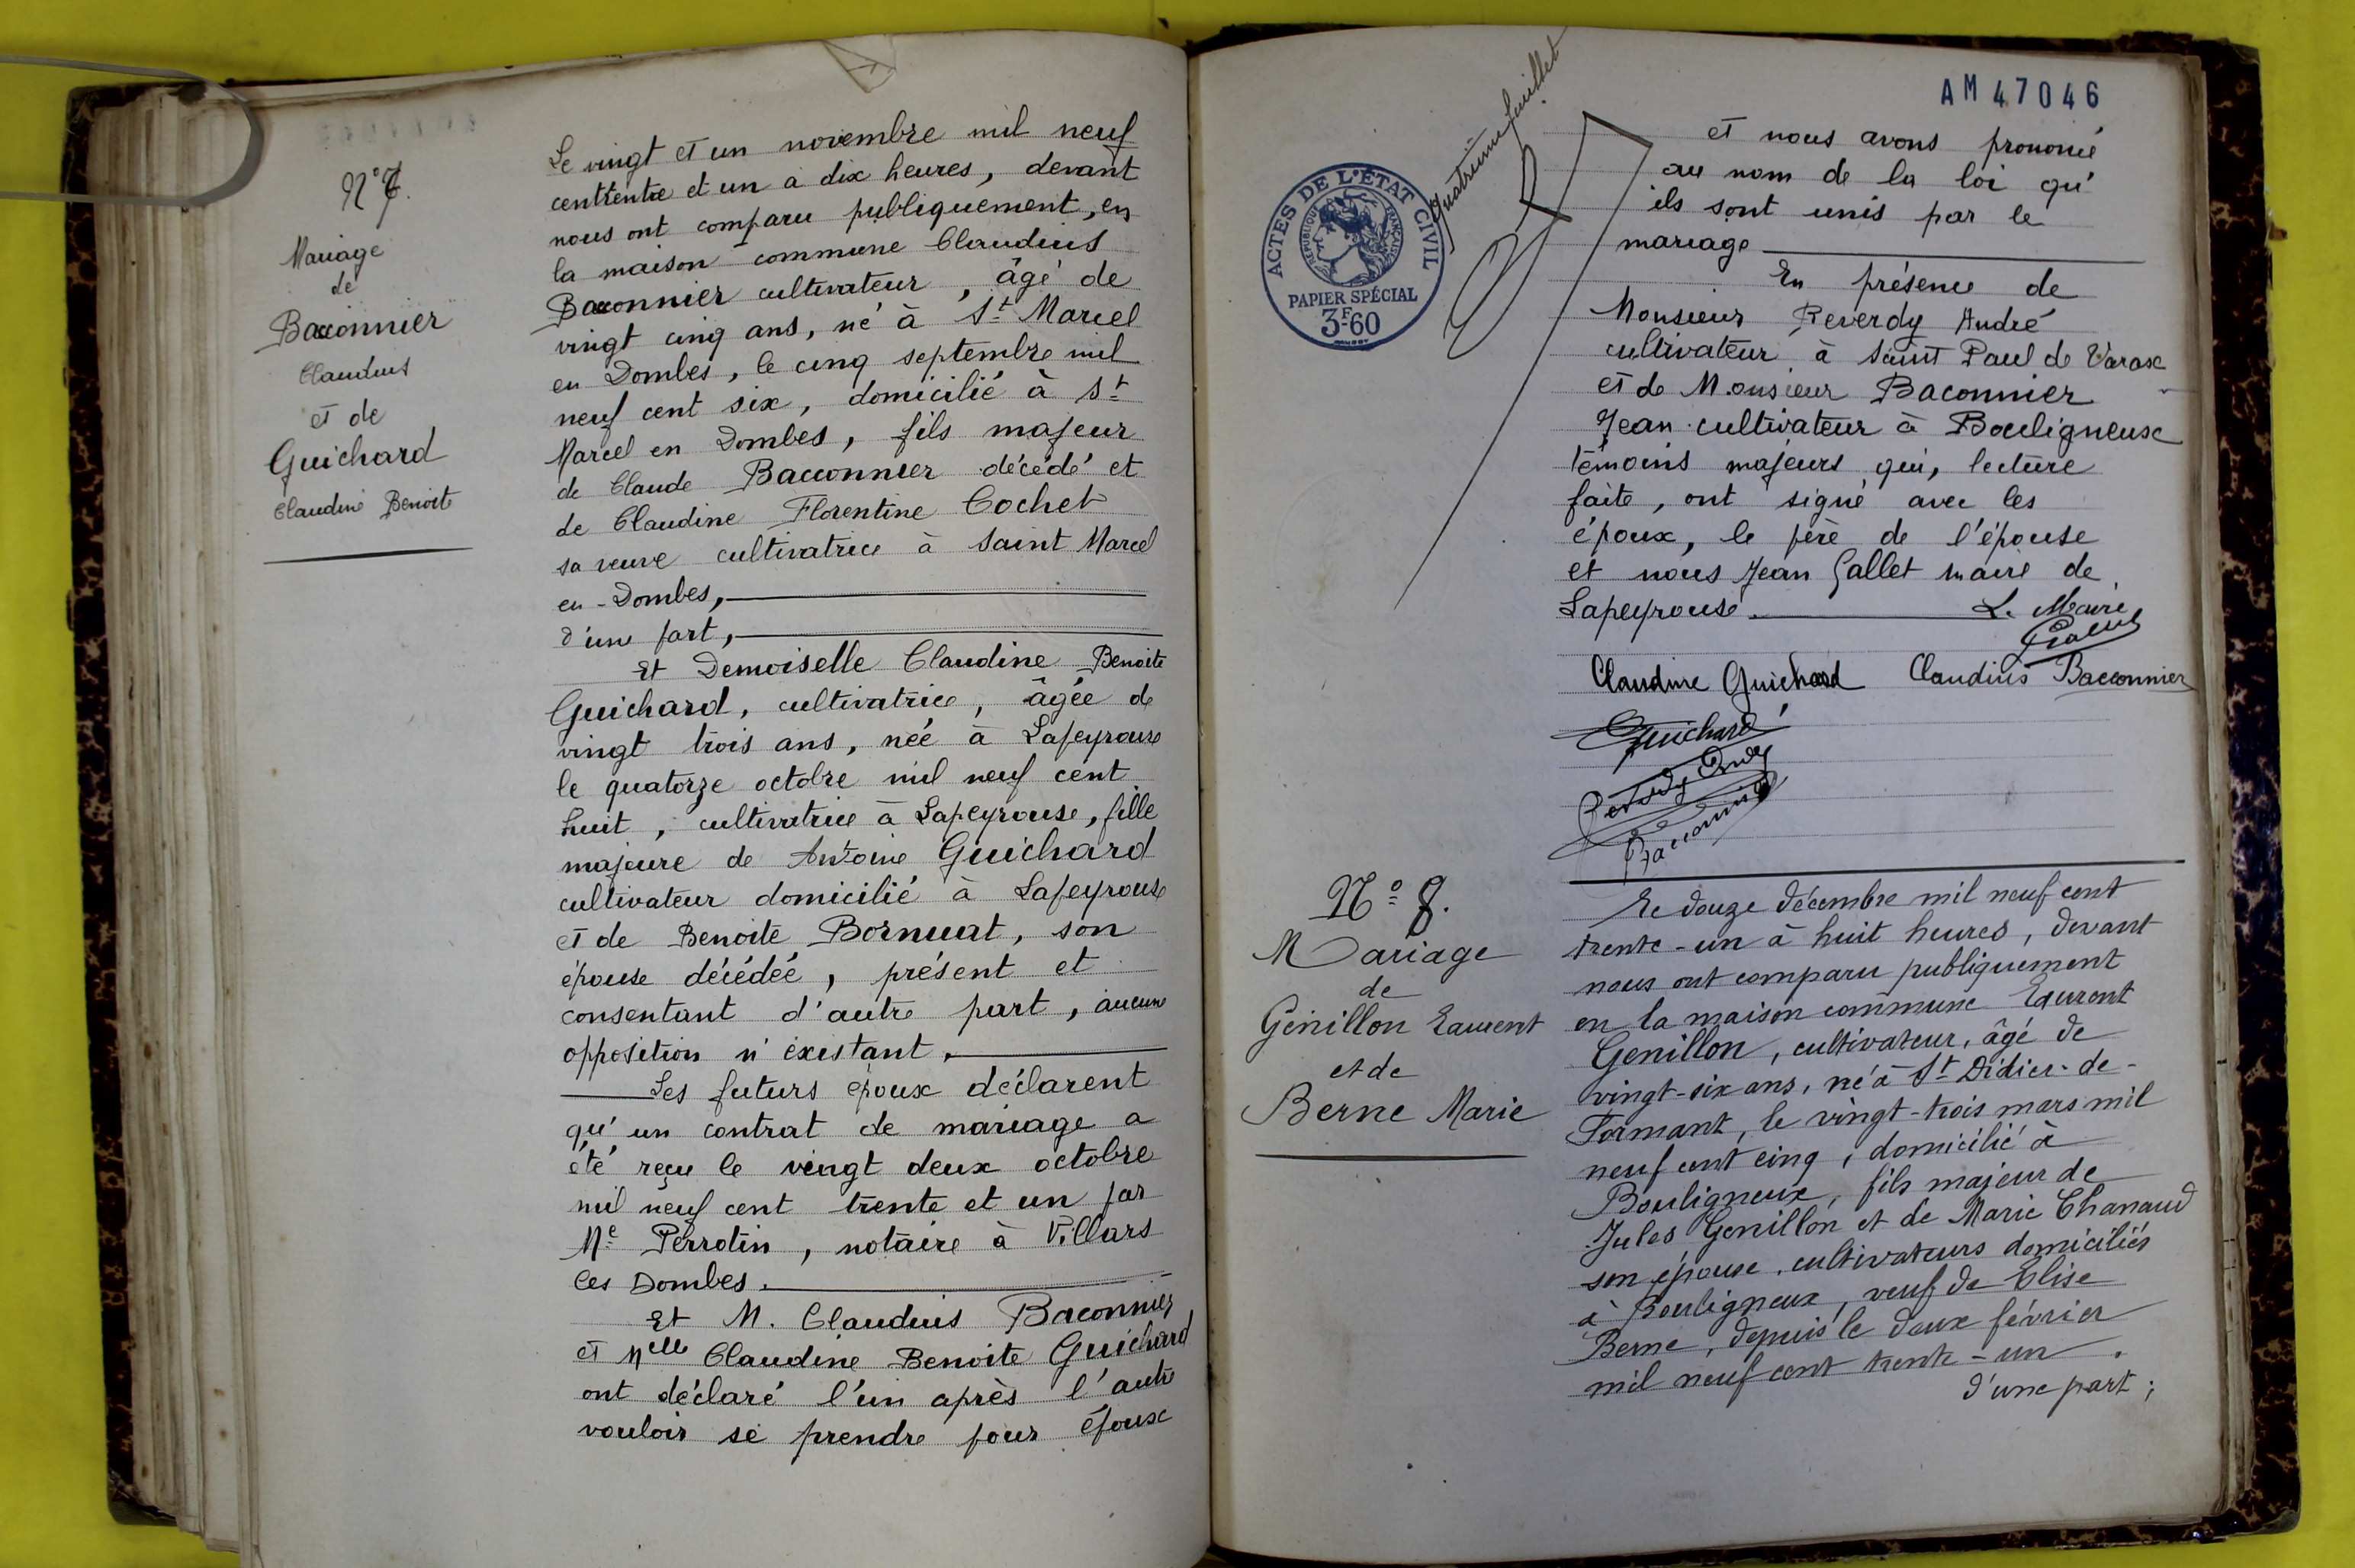 N° 7.
Mariage
de
Bacconnier
Claudius
et de
Guichard
Claudine Benoite
Le vingt et un novembre mil neuf
cent trente et un à dix heures, devant
nous ont comparu publiquement, en
la maison commune Claudius
Bacconnier cultivateur, âgé de
vingt cinq ans, né à St Marcel
en Dombes, le cinq septembre mil
neuf cent six, domicilié à St
Marcel en Dombes, fils majeur
de Claude Bacconnier décédé et
de Claudine Florentine Cochet
sa veuve cultivatrice à Saint Marcel
en-Dombes,
d'une part,
Et Demoiselle Claudine Benoite
Guichard, cultivatrice, âgée de
vingt trois ans, née à Lapeyrouse
le quatorze octobre mil neuf cent
huit, cultivatrice à Lapeyrouse, fille
majeure de Antoine Guichard
cultivateur domicilié à Lapeyrouse
et de Benoite Bornuat, son
épouse décédée, présent et
consentant d'autre part, aucune
opposition n'éxistant.
Les futurs époux déclarent
qu'un contrat de mariage a
été reçu le vingt deux octobre
mil neuf cent trente et un par
Me Perrotin, notaire à Villars
les Dombes.
Et M. Claudius Baconnier
et Melle Claudine Benoite Guichard
ont déclaré l'un après l'autre
vouloir se prendre pour époux
AM 47046
Quatrième feuillet
ACTES DE L'ÉTAT CIVIL
RÉPUBLIQUE FRANÇAISE
PAPIER SPÉCIAL
3F60
et nous avons prononcé
au nom de la loi qu'
ils sont unis par le
mariage
En présence de
Monsieur Reverdy André
cultivateur à Saint Paul de Varax
et de Monsieur Baconnier
Jean cultivateur à Bouligneux
témoins majeurs qui, lecture
faite, ont signé avec les
époux, le père de l'épouse
et nous Jean Gallet maire de
Lapeyrouse. L. Maire
Gallet
Claudine Guichard Claudius Bacconnier
Guichard
Reverdy André
Baconnier
N° 8.
Mariage
de
Génillon Laurent
et de
Berne Marie
Le douze décembre mil neuf cent
trente-un à huit heures, devant
nous ont comparu publiquement
en la maison commune Laurent
Genillon, cultivateur, âgé de
vingt-six ans, né à St Didier-de-
Formant, le vingt-trois mars mil
neuf cent cinq, domicilié à
Bouligneux, fils majeur de
Jules Genillon et de Marie Chanaud
son épouse, cultivateurs domiciliés
à Bouligneux, veuf de Elise
Berne, depuis le deux février
mil neuf cent trente-un.
d'une part;